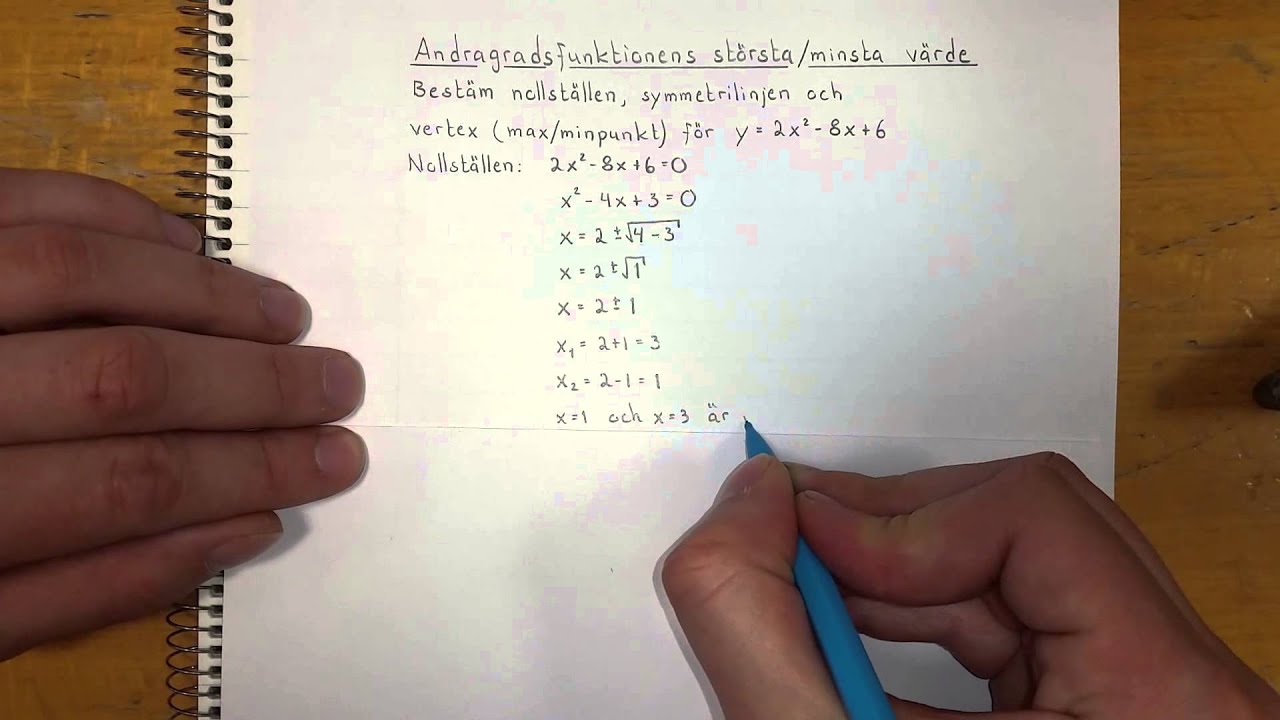 Andragradsfunktionens största/minsta värde
Bestäm nollställen, symmetrilinjen och
vertex (max/minpunkt) för y = 2x² - 8x + 6
Nollställen: 2x² - 8x + 6 = 0
x² - 4x + 3 = 0
x = 2 ± √4 - 3
x = 2 ± √1
x = 2 ± 1
x₁ = 2+1 = 3
x₂ = 2-1 = 1
x=1 och x=3 är